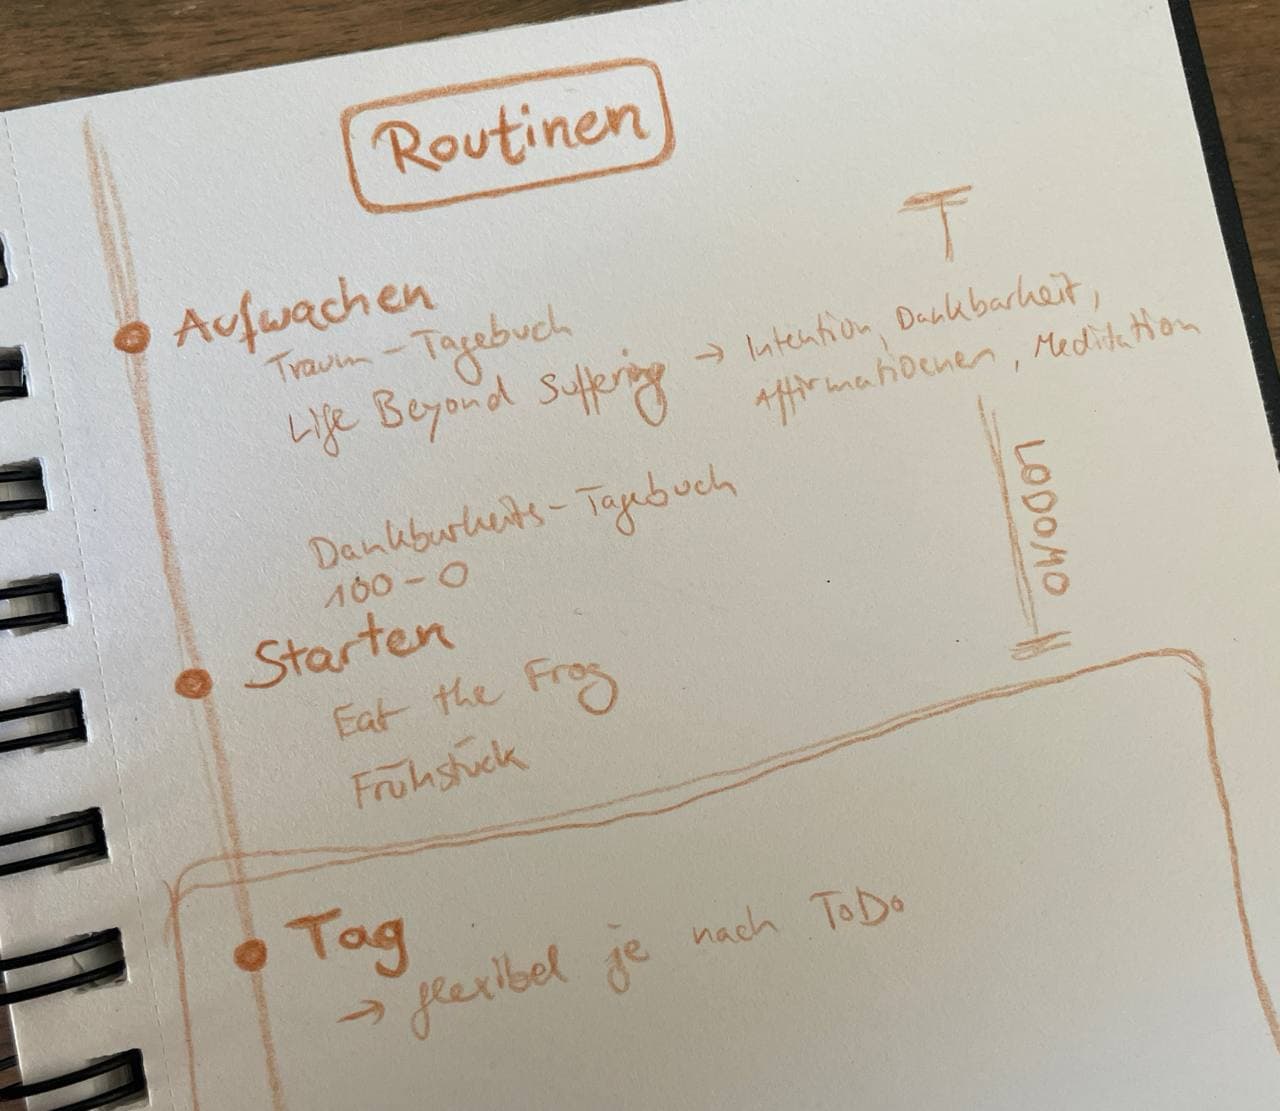 Routinen
Aufwachen
Traum-Tagebuch
Life Beyond Suffering → Intention, Dankbarkeit,
Affirmationenen, Meditation
Dankbarkeits-Tagebuch
100-0
Starten
Eat the Frog
Frühstück
Tag
→ flexibel je nach ToDo